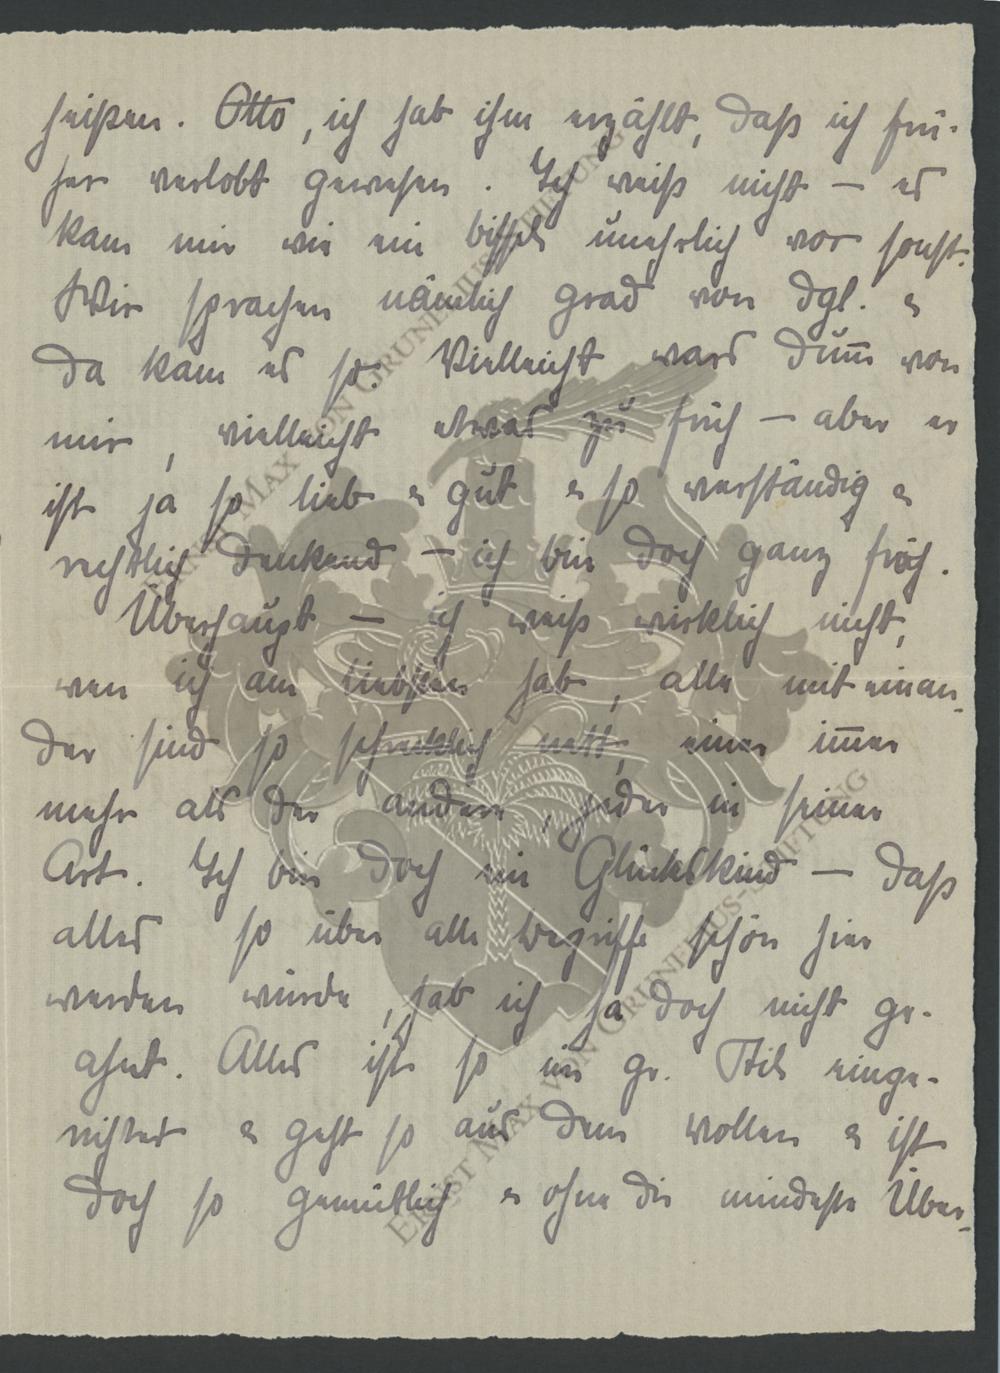 heißen. Otto, ich hab ihm erzählt, daß ich frü-
her verlobt gewesen. Ich weiß nicht — es
kam mir wie ein bissel unehrlich vor sonst.
Wir sprachen nämlich grad von dgl. &
da kam es so. Vielleicht wars dum̅ von
mir, vielleicht etwas zu früh — aber er
ist ja so lieb & gut & so verständig &
rechtlich denkend — ich bin doch ganz froh.
Überhaupt — ich weiß wirklich nicht,
wen ich am liebsten hab, alle mit einan-
der sind so schrecklich nett, einer im̅er
mehr als der andere, jeder in seiner
Art. Ich bin doch ein Glückskind — daß
alles so über alle Begriffe schön hier
werden würde, hab ich ja doch nicht ge-
ahnt. Alles ist so im gr. Stil einge-
richtet & geht so aus dem vollen & ist
doch so gemütlich & ohne die mindeste Über-
ERNST MAX VON GRUNELIUS-STIFTUNG
ERNST MAX VON GRUNELIUS-STIFTUNG